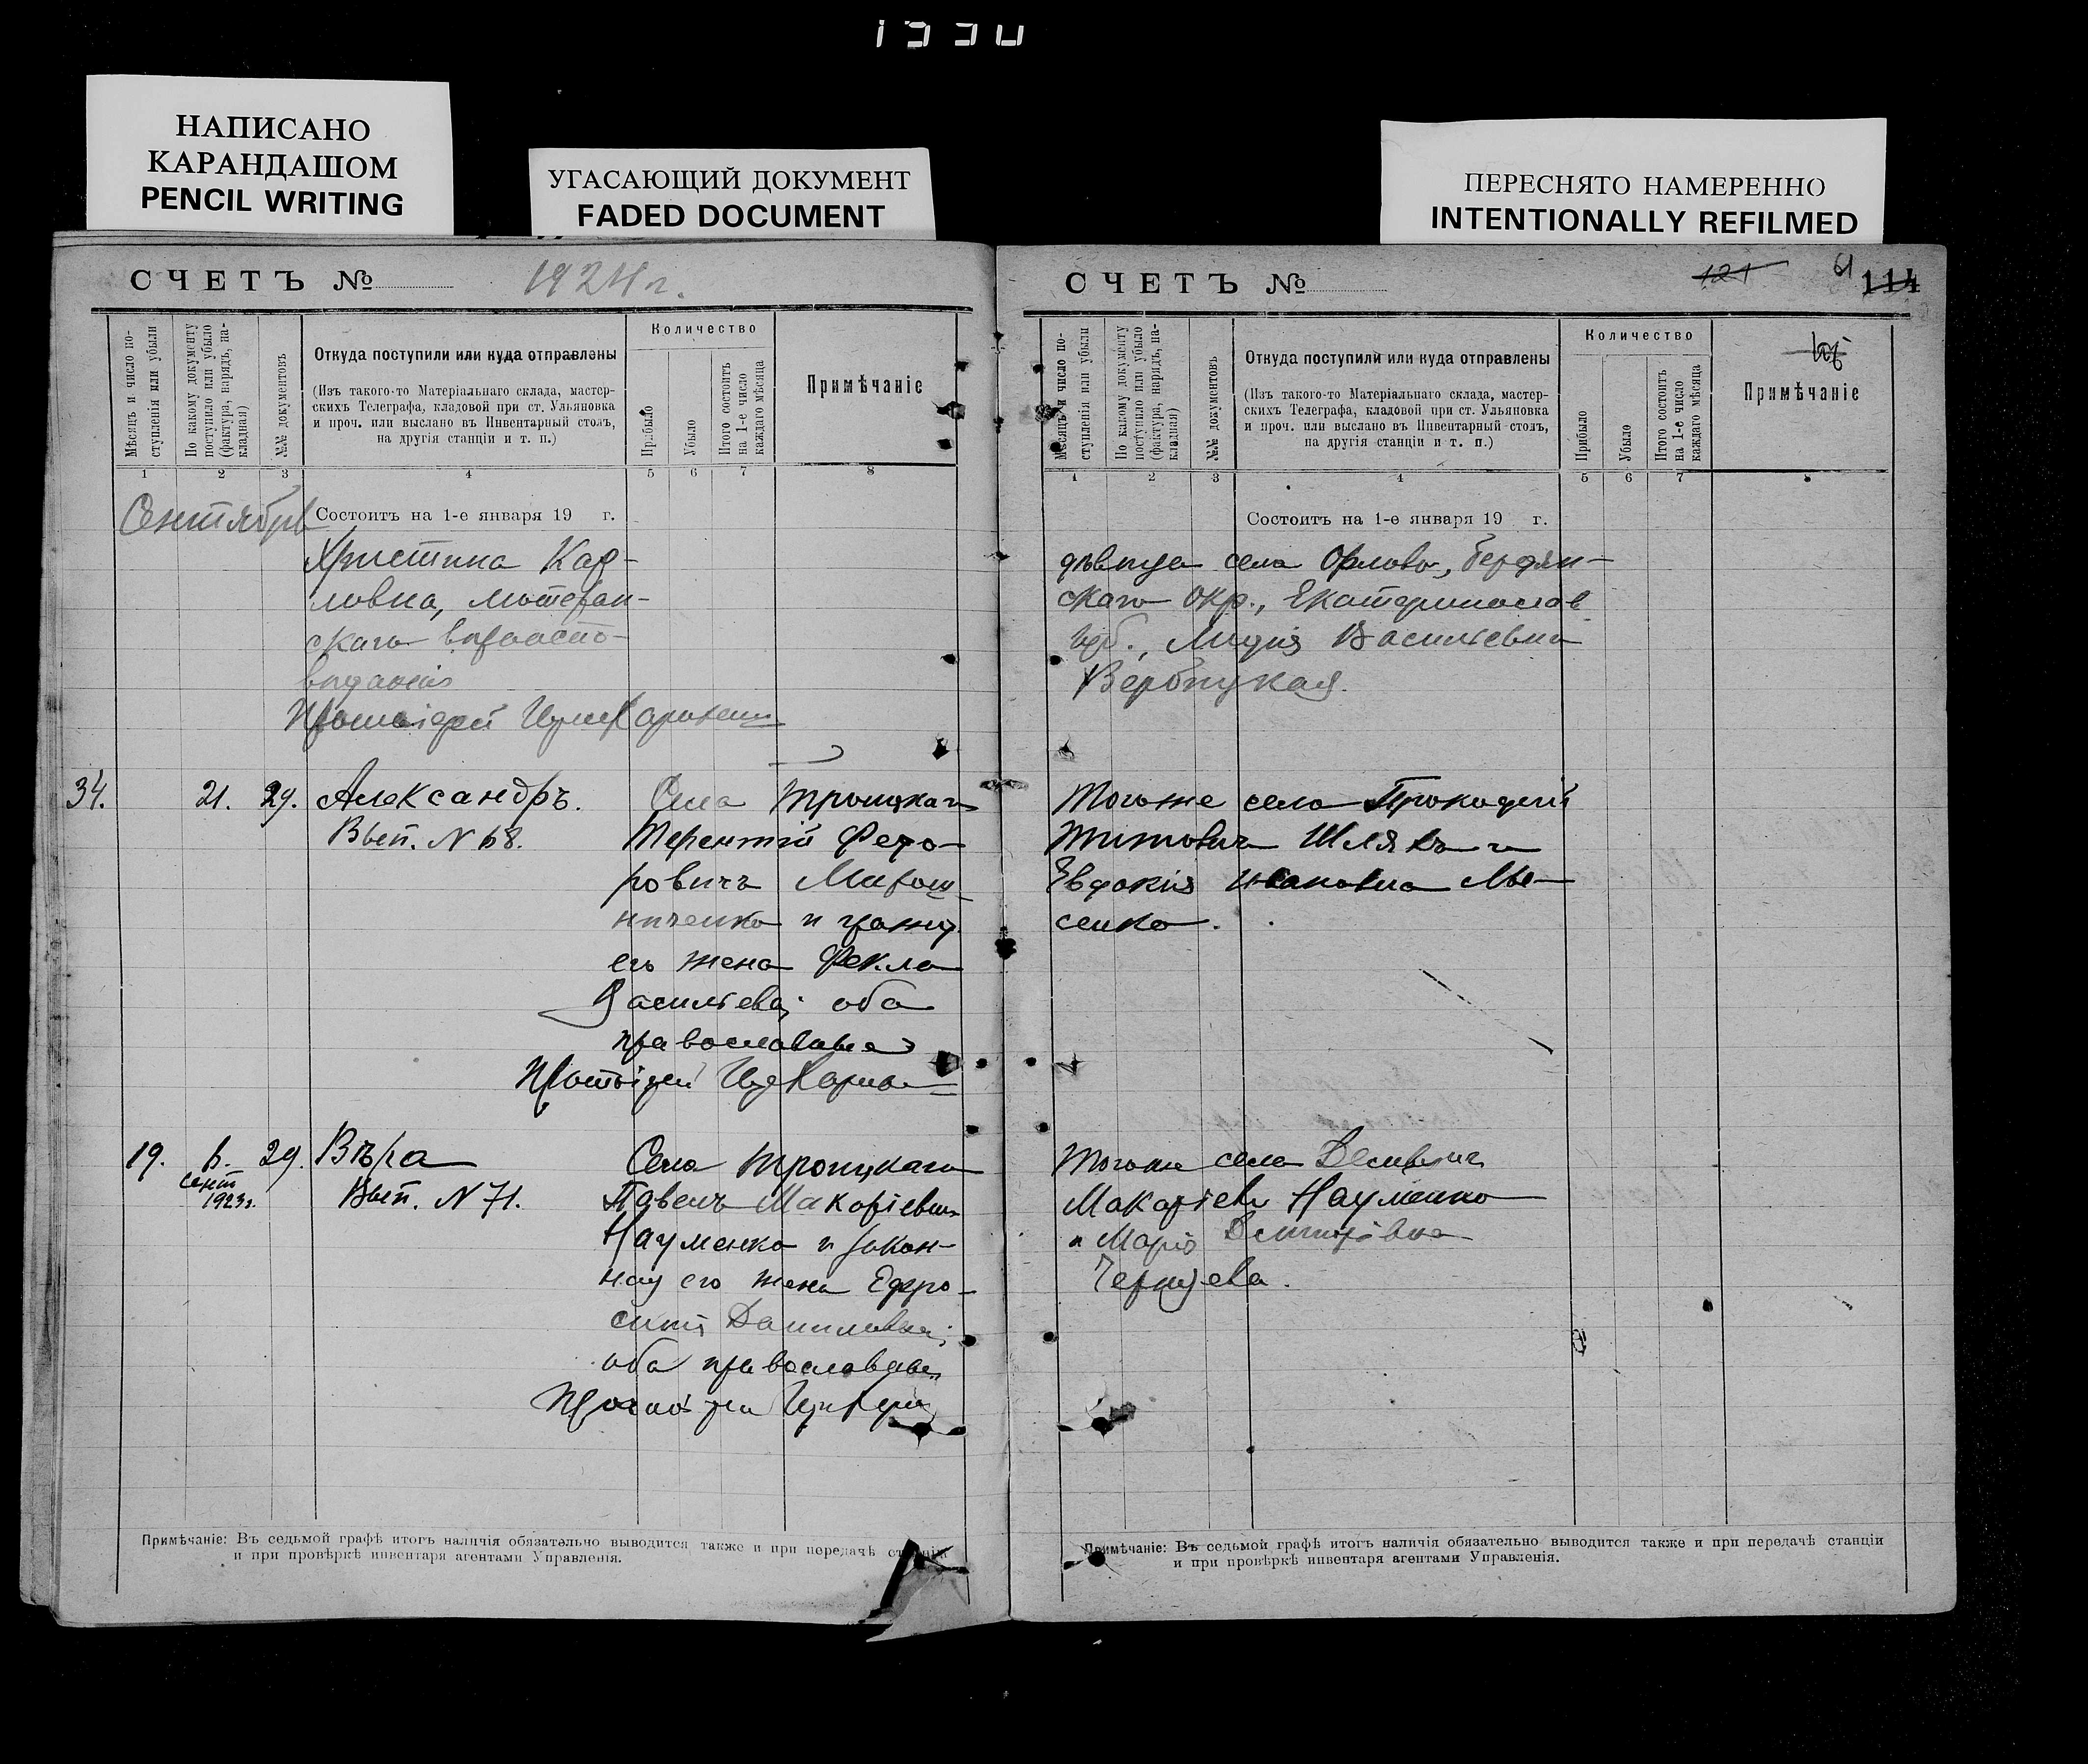 1990
НАПИСАНО
КАРАНДАШОМ
PENCIL WRITING
УГАСАЮЩИЙ ДОКУМЕНТ
FADED DOCUMENT
ПЕРЕСНЯТО НАМЕРЕННО
INTENTIONALLY REFILMED
СЧЕТЪ №
1924 г.
Мѣсяцъ и число по-
ступленія или убыли
По какому документу
поступило или убыло
(фактура, нарядъ, на-
кладная)
№№ документовъ
Откуда поступили или куда отправлены
(Изъ такого-то Матеріальнаго склада, мастер-
скихъ Телеграфа, кладовой при ст. Ульяновка
и проч. или выслано въ Инвентарный столъ,
на другія станціи и т. п.)
Количество
Прибыло
Убыло
Итого состоитъ
на 1-е число
каждаго мѣсяца
Примѣчаніе
1 2 3 4 5 6 7 8
Сентябрь
Состоитъ на 1-е января 19 г.
Христина Кар-
ловна, лютеран-
скаго вѣроиспо-
вѣданія
Протоіерей
34. 21. 29. Александръ. Села Троицкаго
Вып. N 68. Терентій Федо-
ровичъ Мирош-
ниченко и гражд.
его жена Фекла
Васильева; оба
православные
Протоіерей
19. 6. 29. Вѣра Села Троицкаго
сент.
1923 г. Вып. N 71. Павелъ Макаріевичъ
Науменко и закон-
ная его жена Ефро-
синія Даниловна;
оба православные
Протоіерей
Примѣчаніе: Въ седьмой графѣ итогъ наличія обязательно выводится также и при передачѣ станціи
и при провѣркѣ инвентаря агентами Управленія.
СЧЕТЪ №
121 61 114
Мѣсяцъ и число по-
ступленія или убыли
По какому документу
поступило или убыло
(фактура, нарядъ, на-
кладная)
№№ документовъ
Откуда поступили или куда отправлены
(Изъ такого-то Матеріальнаго склада, мастер-
скихъ Телеграфа, кладовой при ст. Ульяновка
и проч. или выслано въ Инвентарный столъ,
на другія станціи и т. п.)
Количество
Прибыло
Убыло
Итого состоитъ
на 1-е число
каждаго мѣсяца
Примѣчаніе
1 2 3 4 5 6 7
Состоитъ на 1-е января 19 г.
дѣвица села Орлова, Бердян-
скаго окр., Екатеринослав.
губ., Лидія Васильевна
Вербицкая.
Тогоже села Прокофій
Титовичъ Шляхъ и
Евдокія Ивановна Лы-
сенко.
Тогоже села
Макаріевъ Науменко
и Марія Дмитріевна
Чернуева.
Примѣчаніе: Въ седьмой графѣ итогъ наличія обязательно выводится также и при передачѣ станціи
и при провѣркѣ инвентаря агентами Управленія.